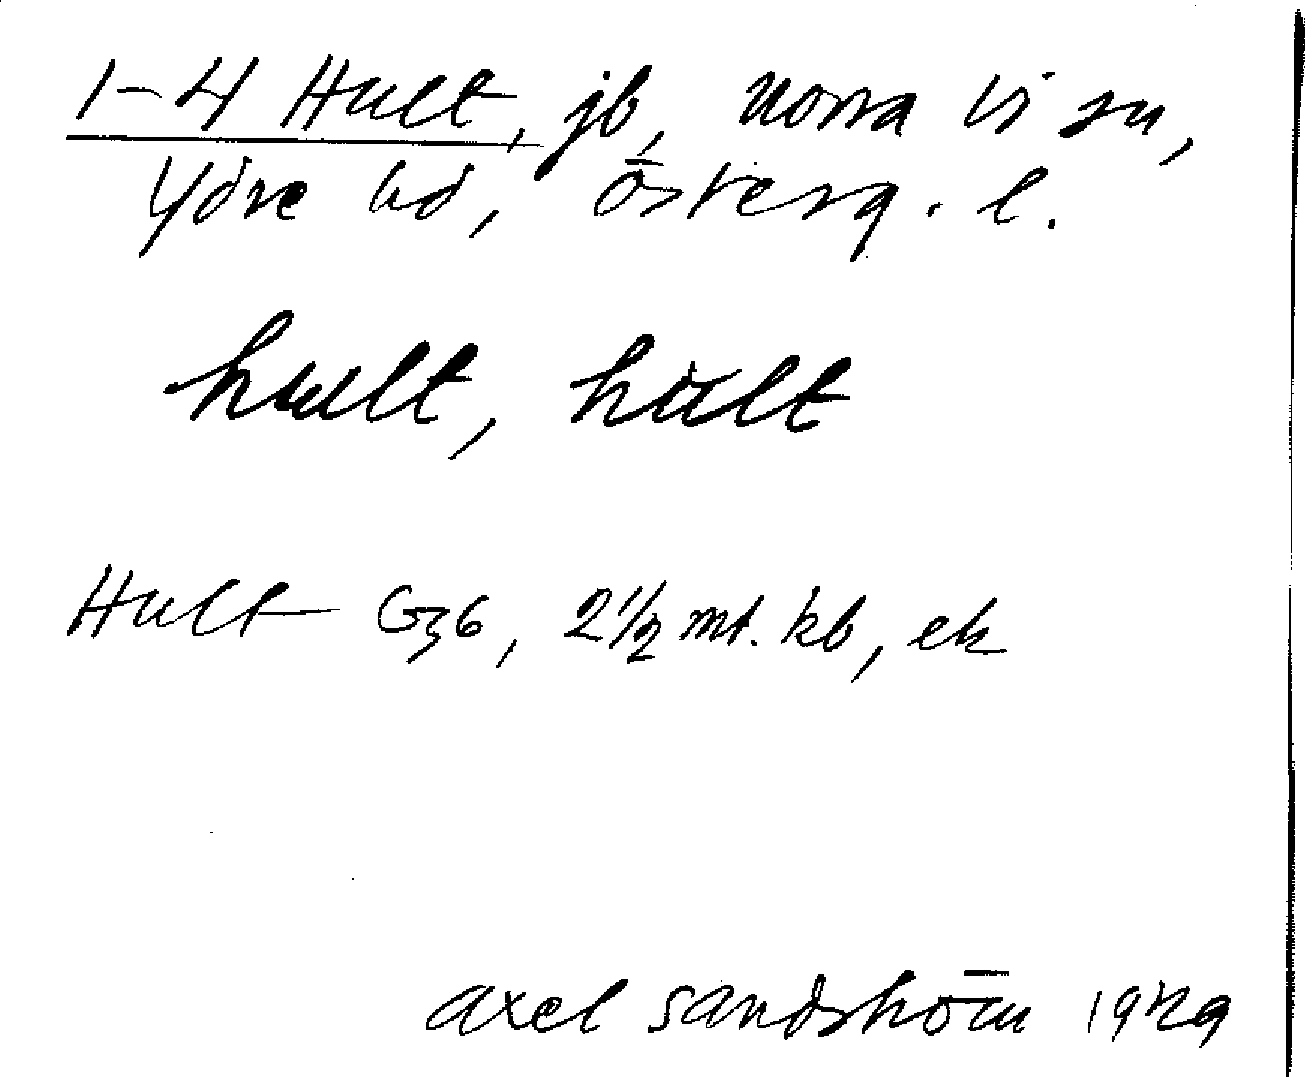 1-4 Hult, jb, Norra Vi sn,
Ydre hd, Österg. l.
hult, hùlt
Hult G36, 2 1/2 mt. kb, ek
Axel Sandström 1929